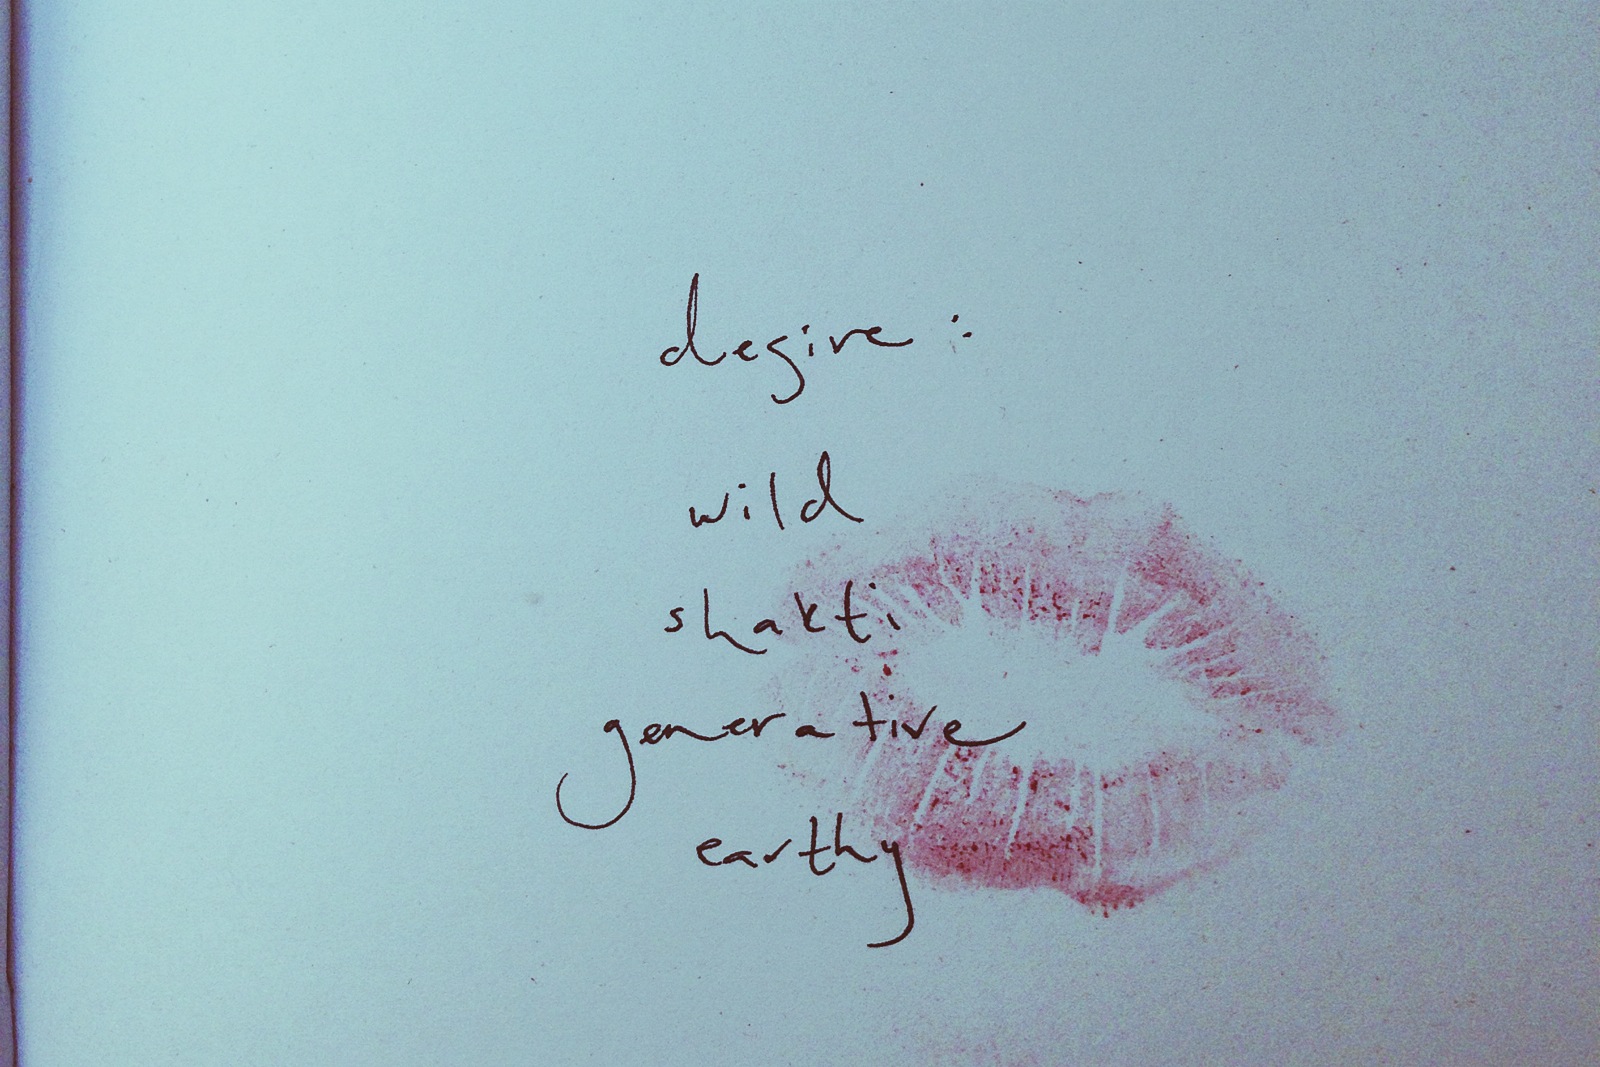 desire:
wild
shakti
generative
earthy